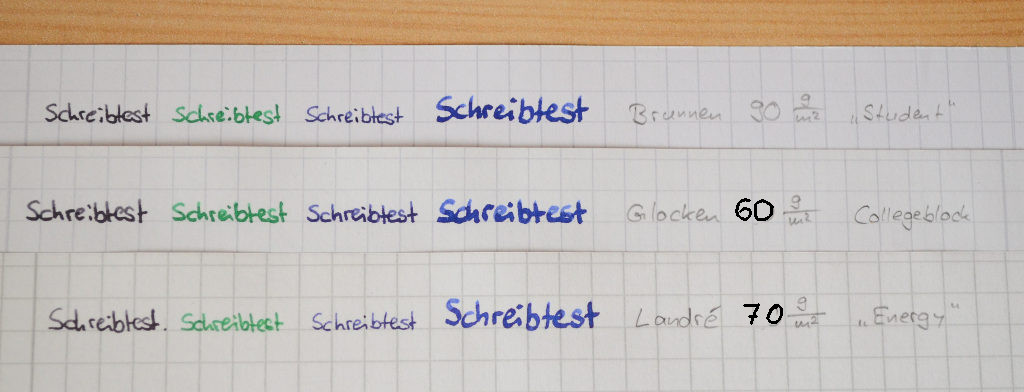 Schreibtest Schreibtest Schreibtest Schreibtest Brunnen 90 g/m² „Student"
Schreibtest Schreibtest Schreibtest Schreibtest Glocken 60 g/m² Collegeblock
Schreibtest. Schreibtest Schreibtest Schreibtest Landré 70 g/m² „Energy"